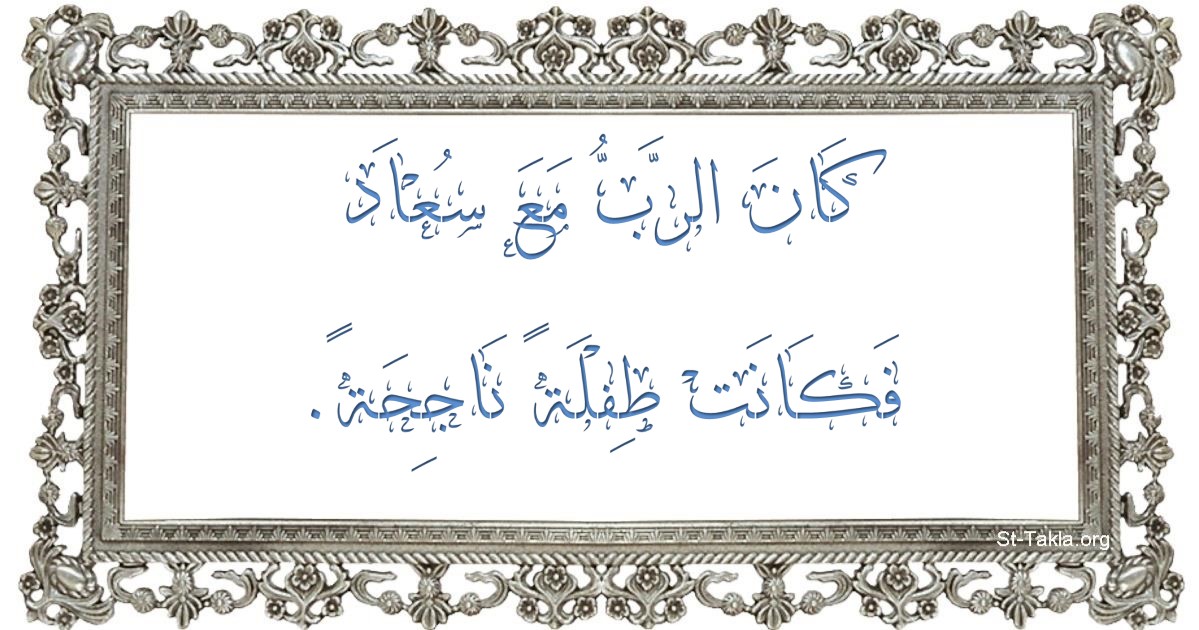 كَانَ الرَّبُّ مَعَ سُعَادَ
فَكَانَتْ طِفْلَةً نَاجِحَةً.
St-Takla.org